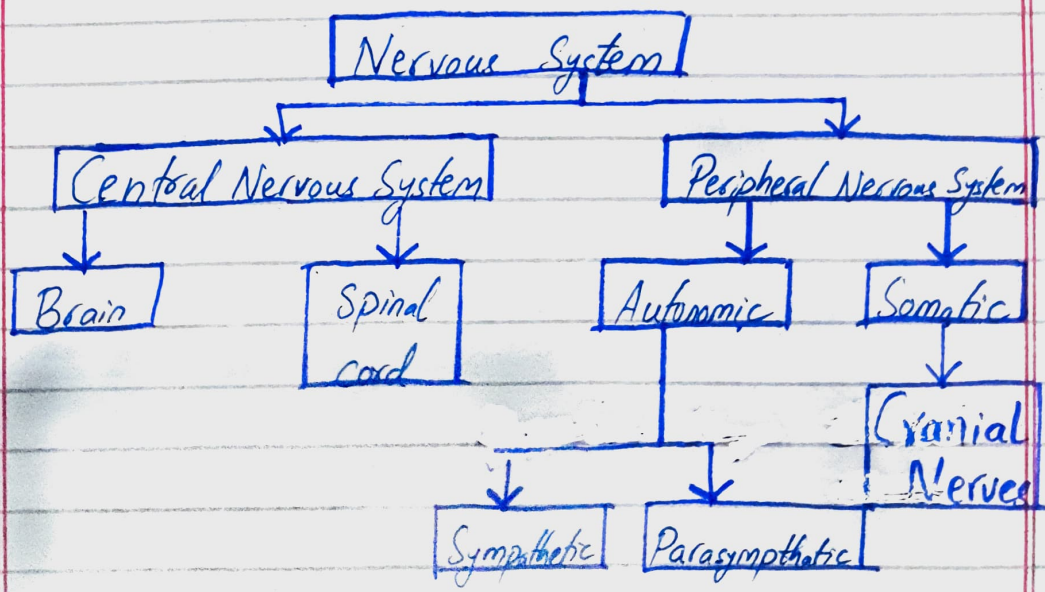 Nervous System
Central Nervous System
Peripheral Nervous System
Brain
Spinal
cord
Autonomic
Somatic
Cranial
Nerves
Sympathetic
Parasympthetic